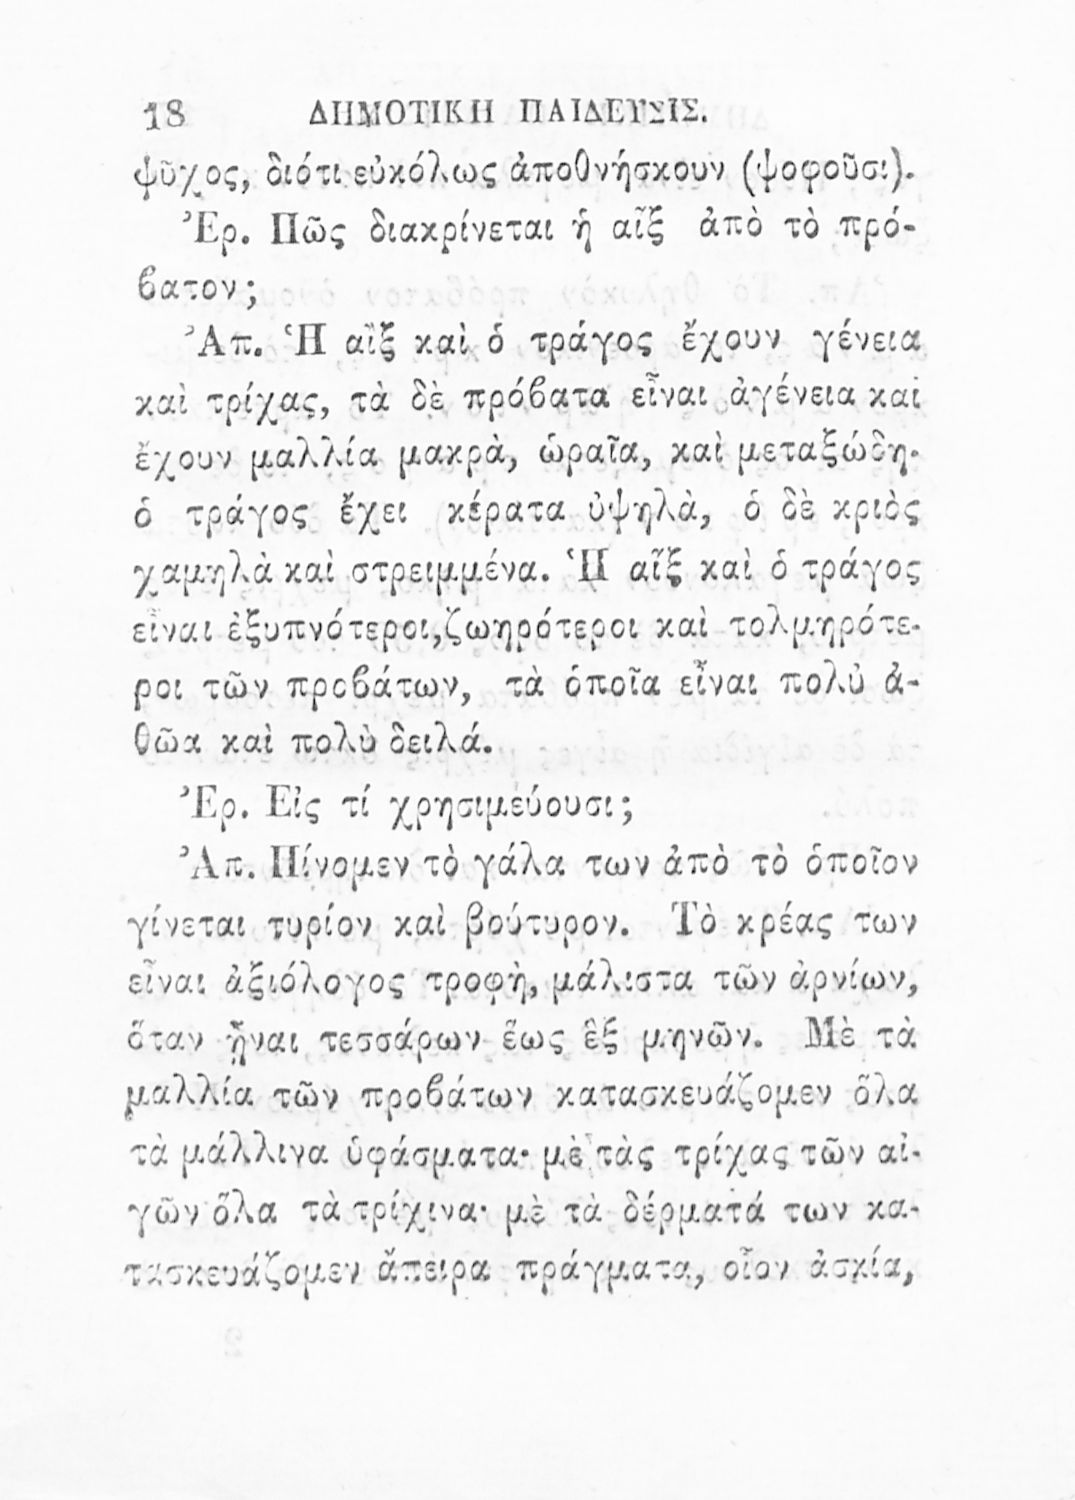 18 ΔΗΜΟΤΙΚΗ ΠΑΙΔΕΥΣΙΣ.
ψῦχος, διότι εὐκόλως ἀποθνήσκουν (ψοφοῦσι).
Ἐρ. Πῶς διακρίνεται ἡ αἴξ ἀπὸ τὸ πρό-
βατον;
Ἀπ. Ἡ αἴξ καὶ ὁ τράγος ἔχουν γένεια
καὶ τρίχας, τὰ δὲ πρόβατα εἶναι ἀγένεια καὶ
ἔχουν μαλλία μακρὰ, ὡραῖα, καὶ μεταξώδη·
ὁ τράγος ἔχει κέρατα ὑψηλὰ, ὁ δὲ κριὸς
χαμηλὰ καὶ στρειμμένα. Ἡ αἴξ καὶ ὁ τράγος
εἶναι ἐξυπνότεροι, ζωηρότεροι καὶ τολμηρότε-
ροι τῶν προβάτων, τὰ ὁποῖα εἶναι πολὺ ἀ-
θῶα καὶ πολὺ δειλά.
Ἐρ. Εἰς τί χρησιμεύουσι;
Ἀπ. Πίνομεν τὸ γάλα των ἀπὸ τὸ ὁποῖον
γίνεται τυρίον καὶ βούτυρον. Τὸ κρέας των
εἶναι ἀξιόλογος τροφὴ, μάλιστα τῶν ἀρνίων,
ὅταν ᾖναι τεσσάρων ἕως ἓξ μηνῶν. Μὲ τὰ
μαλλία τῶν προβάτων κατασκευάζομεν ὅλα
τὰ μάλλινα ὑφάσματα· μὲ τὰς τρίχας τῶν αἰ-
γῶν ὅλα τὰ τρίχινα· μὲ τὰ δέρματά των κα-
τασκευάζομεν ἄπειρα πράγματα, οἷον ἀσκία,